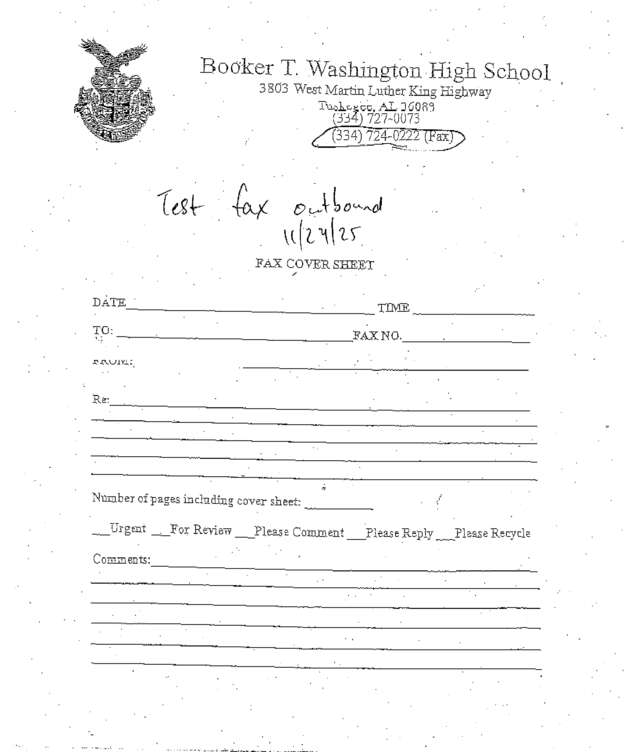 Booker T. Washington High School
3803 West Martin Luther King Highway
Tuskegee, AL 36083
(334) 727-0073
(334) 724-0222 (Fax)
Test fax outbound
11/24/25
FAX COVER SHEET
DATE TIME
TO: FAX NO.
FROM:
Re:
Number of pages including cover sheet:
Urgent For Review Please Comment Please Reply Please Recycle
Comments: